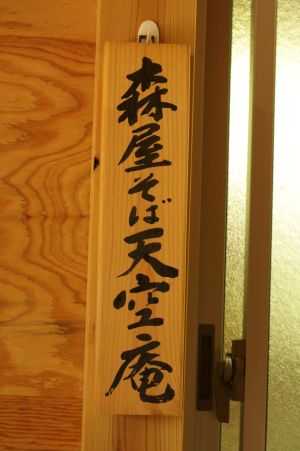 森屋そば天空庵